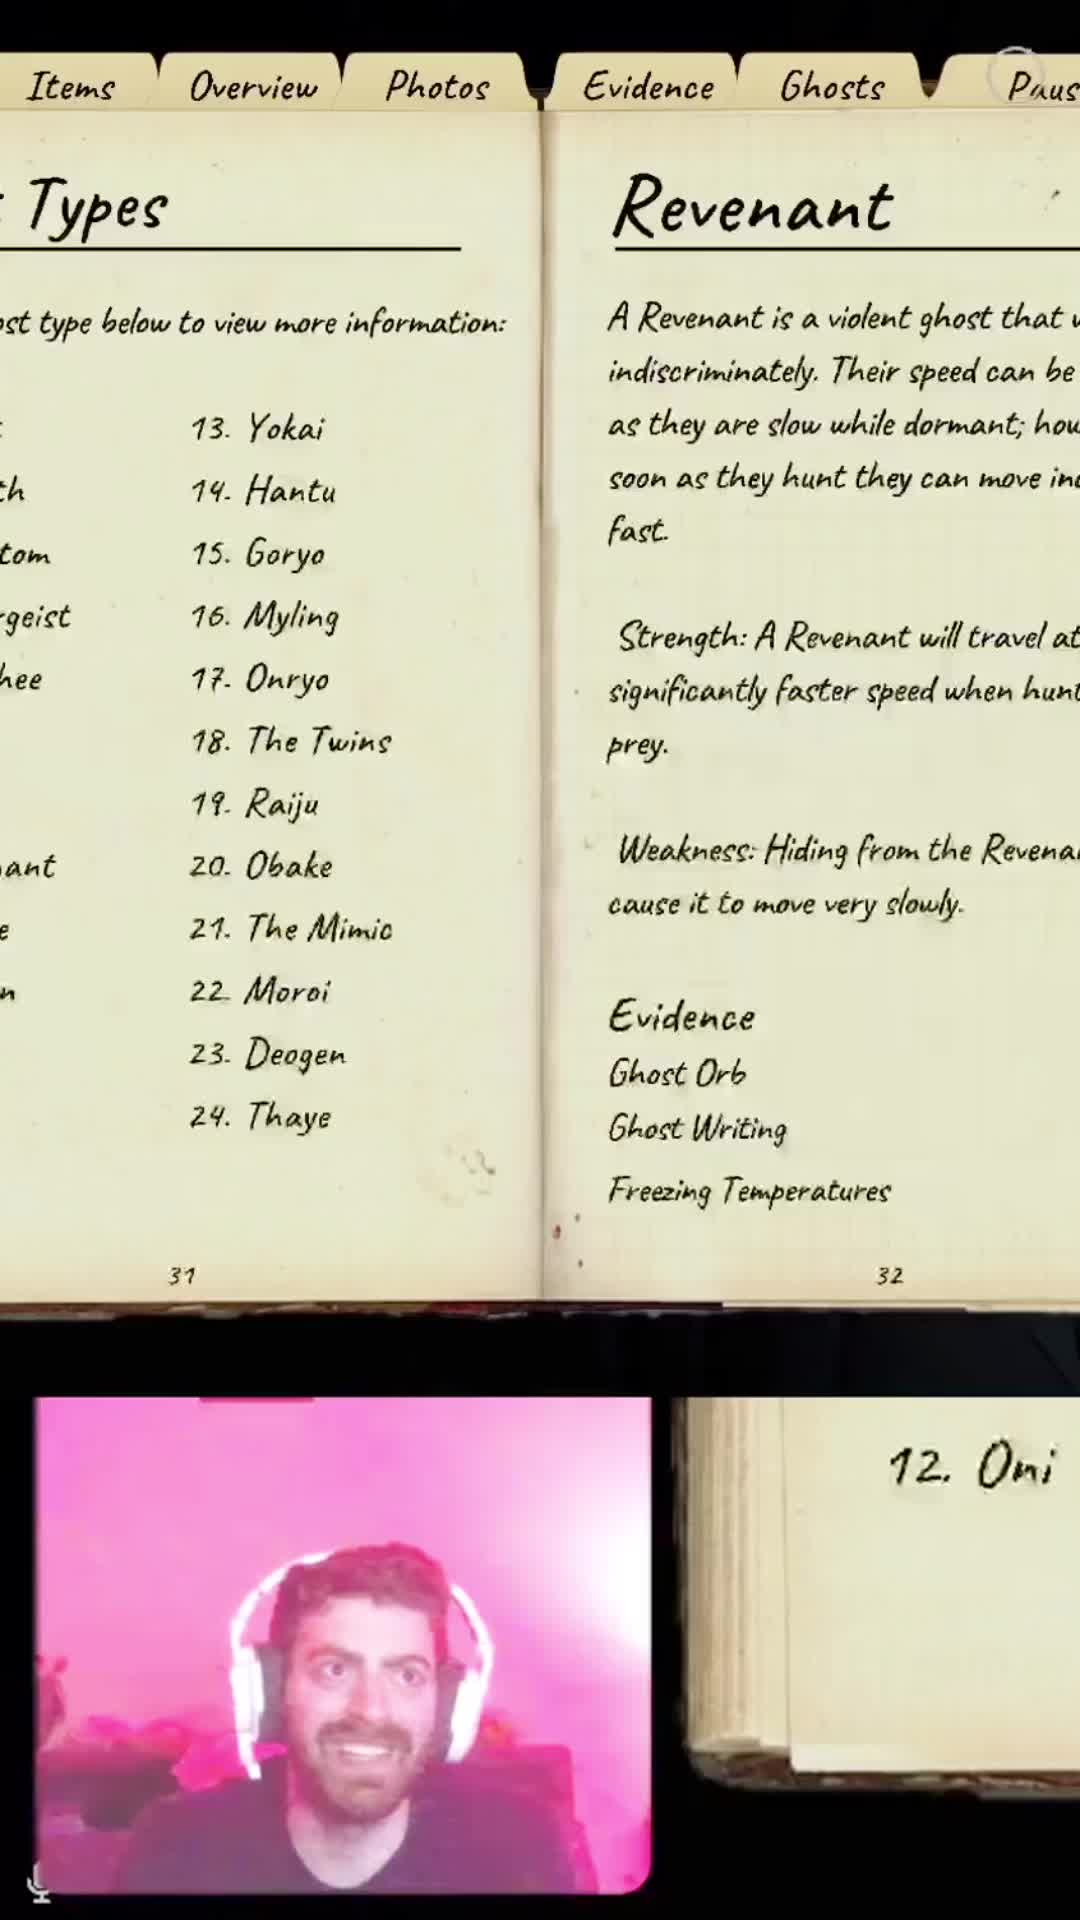 Items Overview Photos Evidence Ghosts
Types
type below to view more information:
13. Yokai
14. Hantu
15. Goryo
16. Myling
17. Onryo
18. The Twins
19. Raiju
20. Obake
21. The Mimic
22. Moroi
23. Deogen
24. Thaye
31
Revenant
A Revenant is a violent ghost that
indiscriminately. Their speed can be
as they are slow while dormant;
soon as they hunt they can move
fast.
Strength: A Revenant will travel at
significantly faster speed when
prey.
Weakness: Hiding from the
cause it to move very slowly.
Evidence
Ghost Orb
Ghost Writing
Freezing Temperatures
32
12. Oni